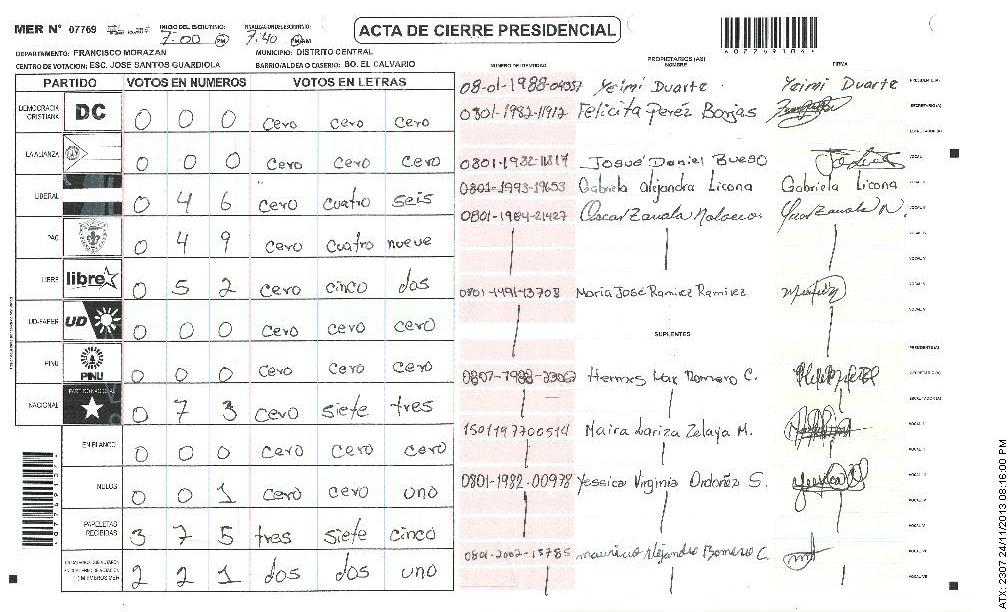 MER N° 07769
INICIO DEL ESCRUTINIO:
7:00 PM
FINALIZACION ESCRUTINIO:
7:40 PM
ACTA DE CIERRE PRESIDENCIAL
DEPARTAMENTO: FRANCISCO MORAZAN
MUNICIPIO: DISTRITO CENTRAL
CENTRO DE VOTACION: ESC. JOSE SANTOS GUARDIOLA
BARRIO/ALDEA O CASERIO: BO. EL CALVARIO
PARTIDO VOTOS EN NUMEROS VOTOS EN LETRAS
DEMOCRACIA CRISTIANA DC 0 0 0 cero cero cero
LA ALIANZA 0 0 0 cero cero cero
LIBERAL 0 4 6 cero cuatro seis
PAC 0 4 9 cero cuatro nueve
LIBRE libre 0 5 2 cero cinco dos
UD-FAPER UD 0 0 0 cero cero cero
PINU PINU 0 0 0 cero cero cero
NACIONAL PARTIDO NACIONAL 0 7 3 cero siete tres
EN BLANCO 0 0 0 cero cero cero
NULOS 0 0 1 cero cero uno
PAPELETAS RECIBIDAS 3 7 5 tres siete cinco
2 2 1 dos dos uno
NUMERO DE IDENTIDAD
PROPIETARIOS (AS)
NOMBRE
FIRMA
Yeimi Duarte Yeimi Duarte
0801-1982-11912 Felicita Perez Borjas
0801-1982-11817 Josué Daniel Bueso
0801-1993-19653 Gabriela alejandra Licona Gabriela Licona
0801-1984-21427 Oscar Zavala
Maria José Ramirez Ramirez
SUPLENTES
Hermes Romero C.
1501197700514 Naira Lariza Zelaya M.
0801-1982-00978 Yessica Virginia Ordoñez S.
mauricio Alejandro Romero C.
ATX: 2307 24/11/2013 08:16:00 PM